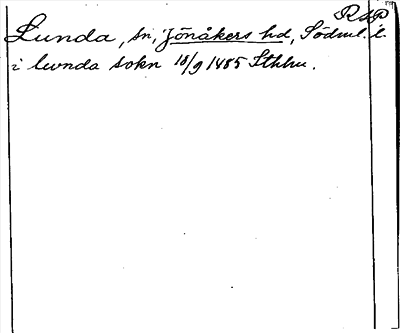 RAP
Lunda, sn, Jönåkers hd, Södml. l.
i lwnda sokn 18/9 1485 Sthlm.